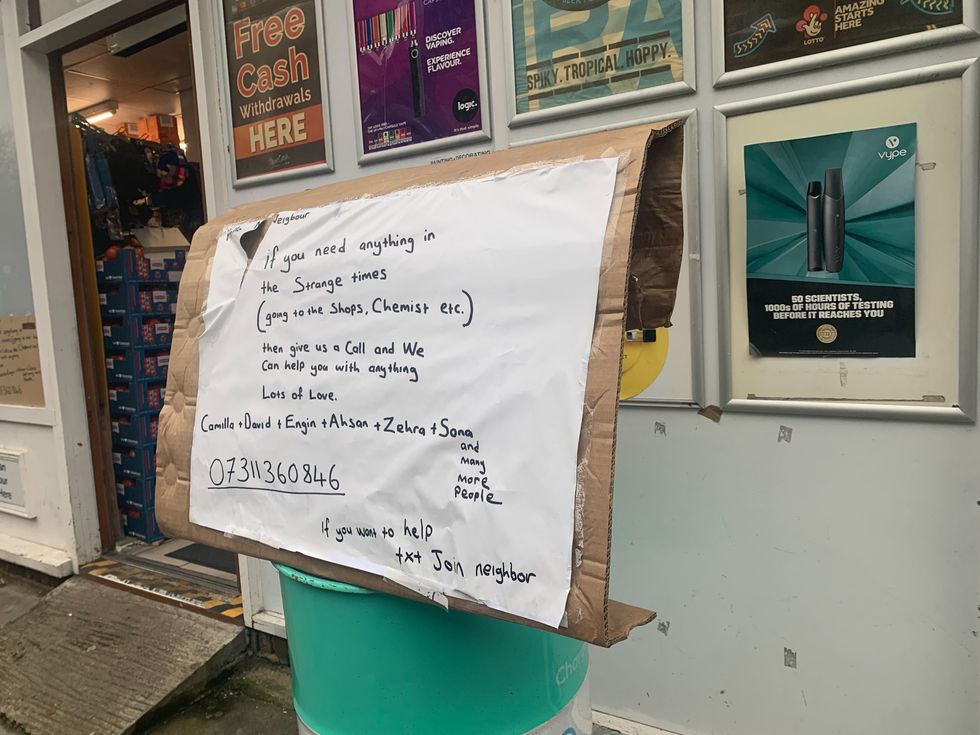 Free
Cash
Withdrawals
HERE
DISCOVER
VAPING.
EXPERIENCE
FLAVOUR.
logic.
SPIKY. TROPICAL. HOPPY.
LOTTO
AMAZING
STARTS
HERE
PAINTING + DECORATING
vype
50 SCIENTISTS,
1000s OF HOURS OF TESTING
BEFORE IT REACHES YOU
Neigbour
if you need anything in
the Strange times
(going to the Shops, Chemist etc.)
then give us a Call and We
Can help you with anything
Lots of Love.
Camilla + David + Engin + Ahsan + Zehra + Sona
and
many
more
People
07311360846
If you want to help
txt Join neighbor